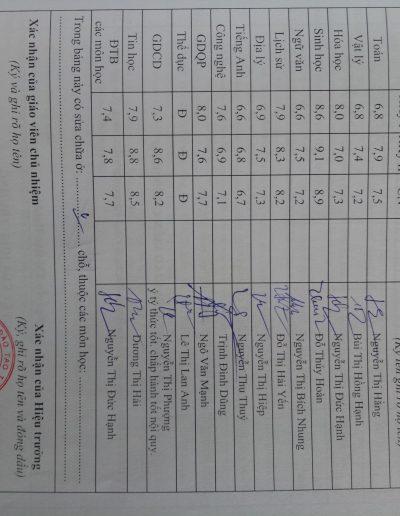 Toán 6,8 7,9 7,5 Nguyễn Thị Hằng
Vật lý 6,8 7,4 7,2 Bùi Thị Hồng Hạnh
Hóa học 8,0 7,0 7,3 Nguyễn Thị Đức Hạnh
Sinh học 8,6 9,1 8,9 Đỗ Thúy Hoàn
Ngữ văn 6,6 7,5 7,2 Nguyễn Thị Bích Nhung
Lịch sử 7,9 8,3 8,2 Đỗ Thị Hải Yến
Địa lý 6,9 7,5 7,3 Nguyễn Thị Hiệp
Tiếng Anh 6,6 6,8 6,7 Nguyễn Thu Thuý
Công nghệ 7,6 6,9 7,1 Trịnh Đình Dũng
GDQP 8,0 7,6 7,7 Ngô Văn Mạnh
Thể dục Đ Đ Đ Lê Thị Lan Anh
GDCD 7,3 8,6 8,2 Nguyễn Thị Phượng
ý tý thức tốt, chấp hành tốt nội quy.
Tin học 7,9 8,8 8,5 Dương Thị Hải
ĐTB các môn học 7,4 7,8 7,7 Nguyễn Thị Đức Hạnh
Trong bảng này có sửa chữa ở: chỗ, thuộc các môn học:
Xác nhận của giáo viên chủ nhiệm
(Ký và ghi rõ họ tên)
Xác nhận của Hiệu trưởng
(Ký, ghi rõ họ tên và đóng dấu)